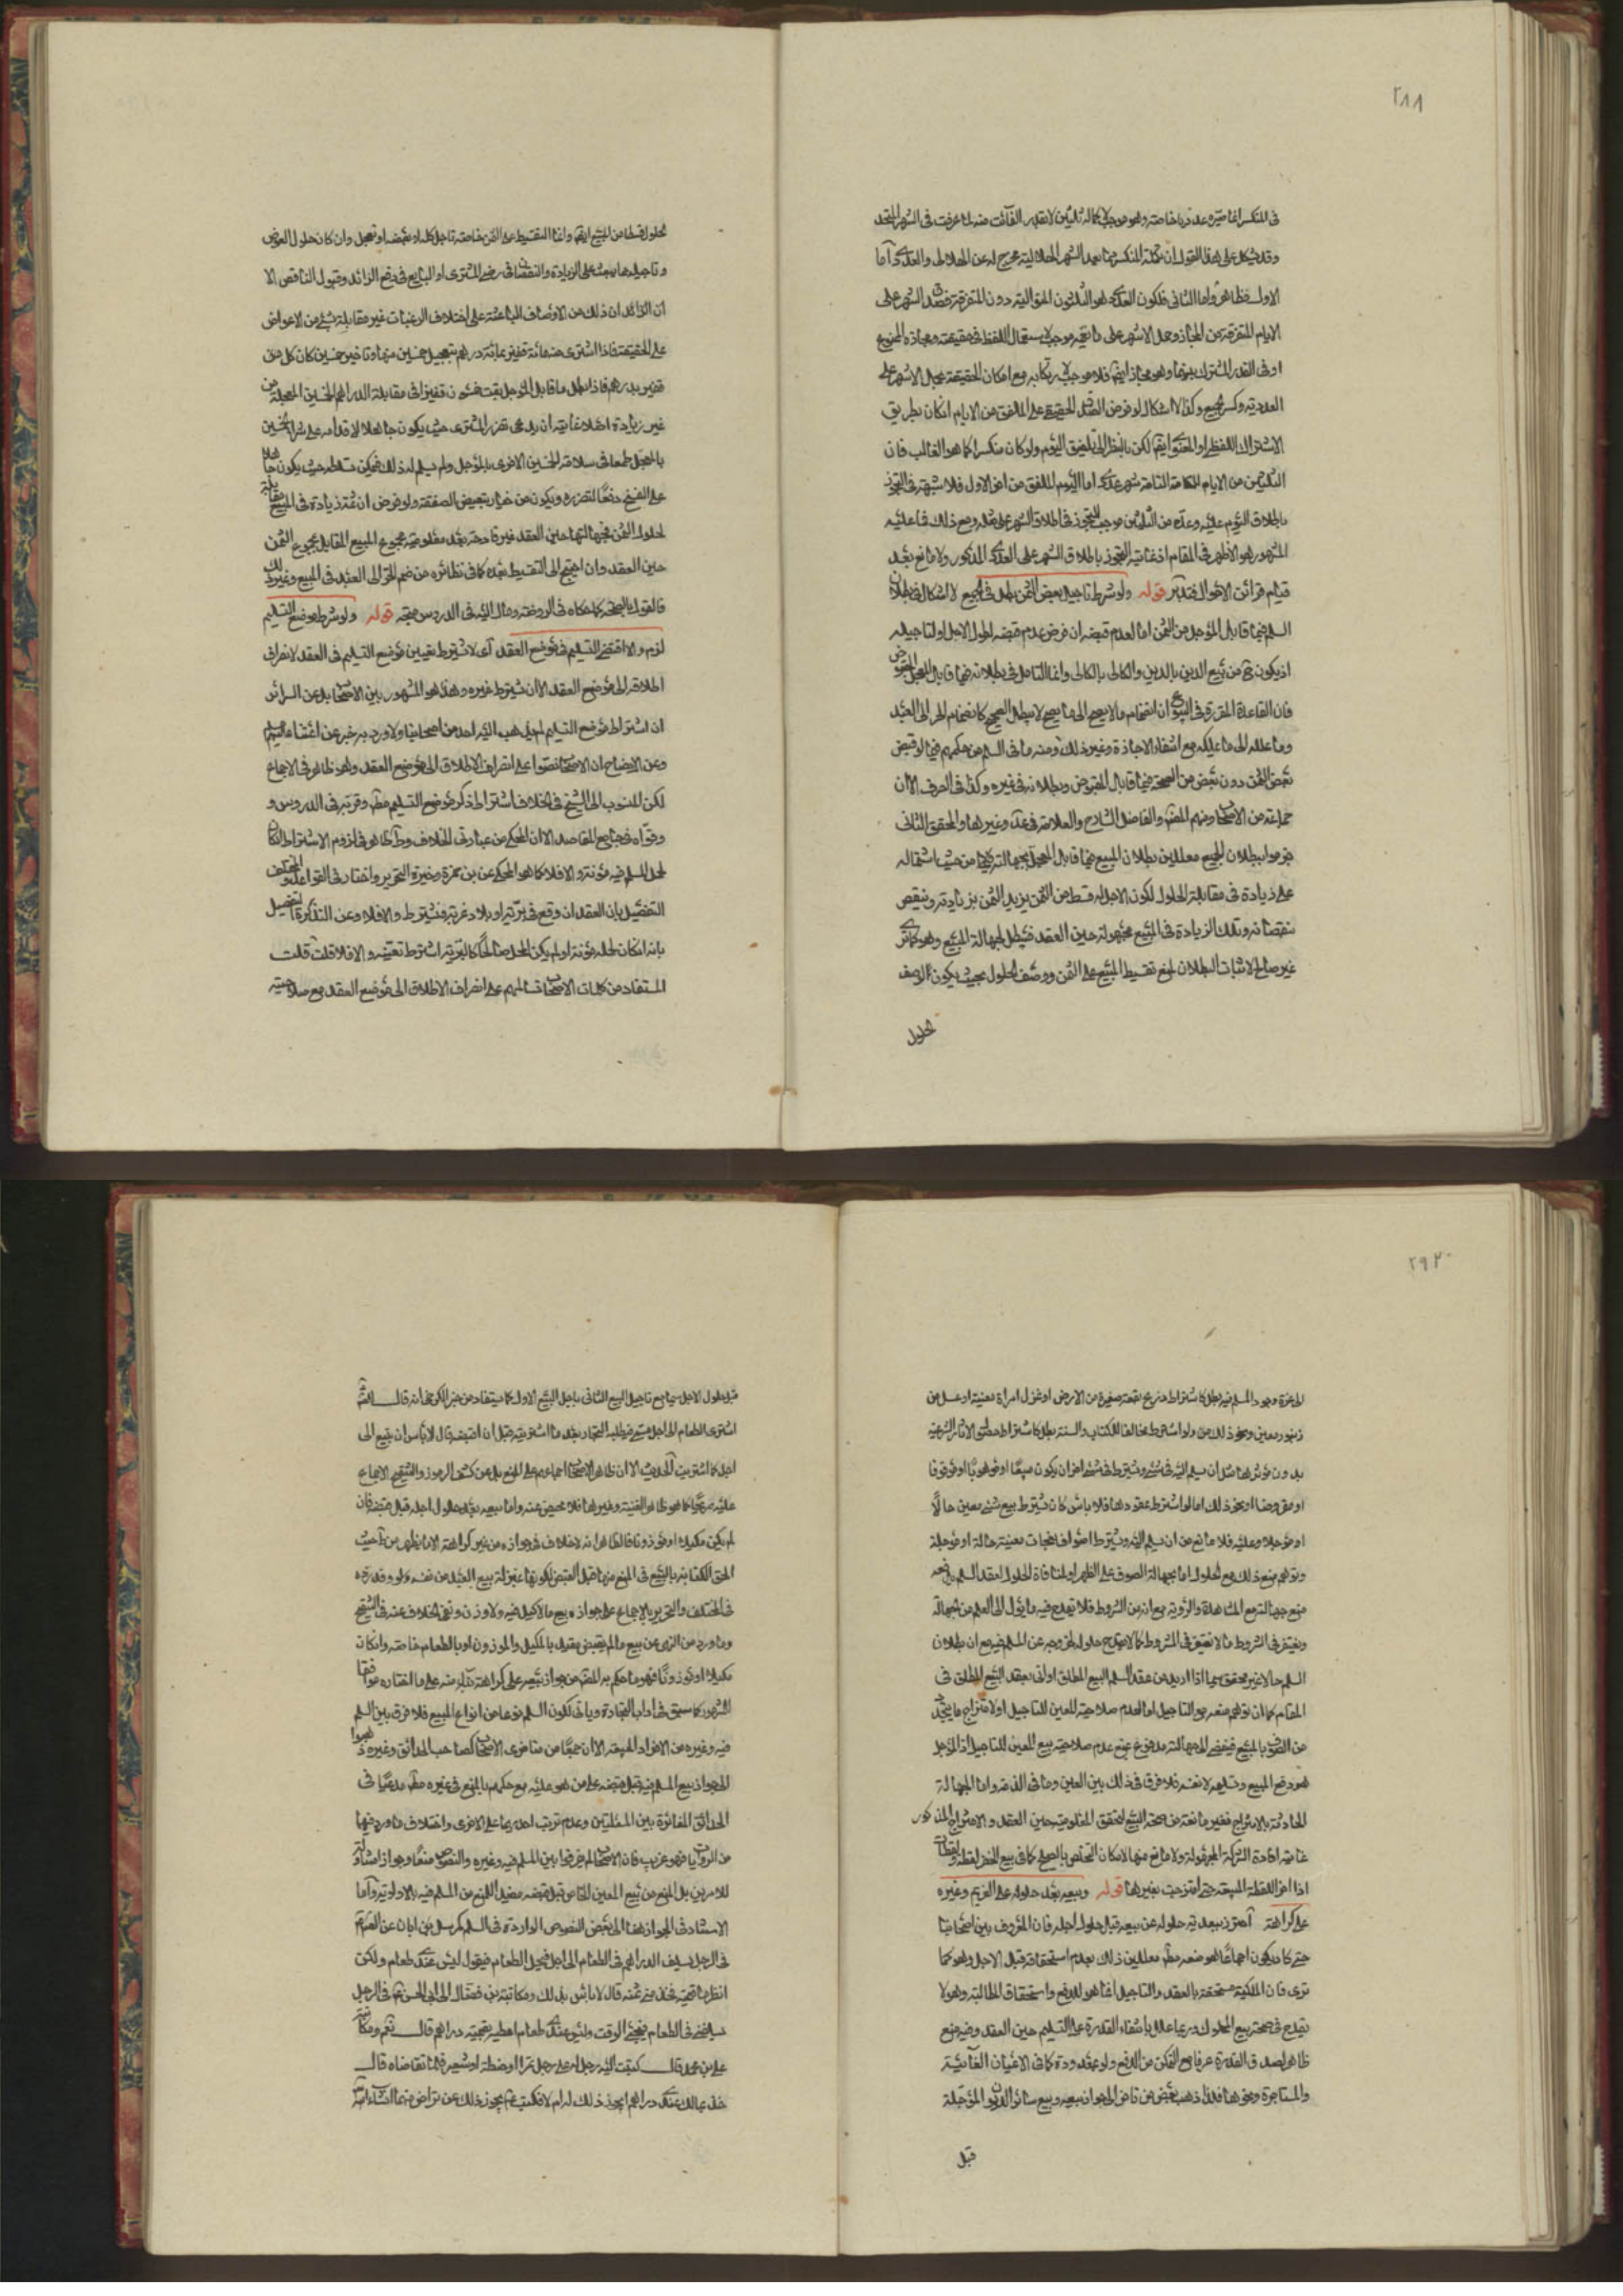 ٢٨٨
في المنكسر انما صيّره عدد ربا خاصته وهو موجب لاكماله ثلثين لا بقدر الفائت منه لما عرفت في الشهر المتحد
وقد يشكل على هذا القول ان تكملة المنكسر مما بعد الشهر الهلالية مخرج له عن الهلالى والعددى اما
الاول فظاهر واما الثانى فلكون العددى هو الثلثون المتوالية دون المتفرقة فصدق الشهر على
الايام المتفرقة من المجاز وحمل الاشهر على ما يعمه موجب لاستعمال اللفظ في حقيقته ومجازه الممنوع
او في القدر المشترك بينهما وهو مجاز ايضا فلا موجب لارتكابه مع امكان الحقيقة بحمل الاشهر على
العددية وكسر الجميع وكذا لا اشكال لو فرض الصدق الحقيقى على الملفق من الايام ان كان بطريق
الاشتراك اللفظى او المعنوى ايضا لكن بالنظر الى تلفيق اليوم ولو كان منكسرا كما هو الغالب فان
الثلثين من الايام الكاملة التامة شهر عددى اما اليوم الملفق من اخر الاول فلا شبهة في التجوز
باطلاق اليوم عليه وعدّه من الثلثين موجب للتجوز في اطلاق الشهر على مثله ومع ذلك فما عليه
المشهور هو الاظهر في المقام اذ غايته التجوز باطلاق الشهر على العددى المذكور ولا مانع بعد
قيام قرائن الاحوال فتدبر قوله ولو شرط تاجيل بعض الثمن بطل في الجميع لا اشكال في بطلان
السلم فيما قابل المؤجل من الثمن اما لعدم قبضه ان فرض عدم قبضه لطول الاجل او لتاجيله
اذ يكون ح من بيع الدين بالدين والكالى بالكالى وانما التامل في بطلانه فيما قابل المعجل المقبوض
فان القاعدة المقررة في البيوع ان انضمام ما لا يصح الى ما يصح لا يبطل الصحيح كانضمام الحر الى العبد
وما يملكه الى ما لا يملكه مع انتفاء الاجازة وغير ذلك ومنه ما في السلم من حكمهم فيما لو قبض
بعض الثمن دون بعض من الصحة فيما قابل المقبوض وبطلانه في غيره وكذا في الصرف الا ان
جماعة من الاصحاب ومنهم المصنف والفاضل الشارح والعلامة في عد وغيرها والمحقق الثانى
جزموا ببطلان الجميع معللين بطلان المبيع فيما قابل المعجل بجهالته من حيث اشتماله
على زيادة في مقابلة الحلول لكون الاجل له قسط من الثمن يزيد الثمن بزيادته وينقص
بنقصانه وتلك الزيادة في المبيع مجهولة حين العقد فيبطل لجهالة المبيع وهو كما ترى
غير صالح لاثبات البطلان لمنع تقسيط المبيع على الثمن ووصف الحلول بحيث يكون لوصف
الحلول
الحلول قسطا من المبيع ايضا وانما التقسيط على الثمن خاصة تاجل كله او بعضه او تعجل وان كان حلول العوض
وتاجيله مما يبعث على الزيادة والنقصان في رضى المشترى او البايع في دفع الزائد وقبول الناقص الا
ان الزائد ان ذلك من الاوصاف الباعثة على اختلاف الرغبات غير مقابلة بشئ من الاعواض
على الحقيقة فاذا اشترى منه مائة قفيز بمائة درهم بتعجيل خمسين منها وتاخير خمسين كان كل من
قفيز بدرهم فاذا بطل ما قابل المؤجل بقيت خمسون قفيزا في مقابلة الدراهم الخمسين المعجلة من
غير زيادة اصلا غايته ان يدعى تضرر المشترى حيث يكون جاهلا لاقدامه على شراء الخمسين
بالمعجل طمعا في سلامة الخمسين الاخرى بالمؤجل ولم يسلم له ذلك فيمكن تسلطه حيث يكون جاهلا
على الفسخ دفعا لتضرره ويكون من خيار تبعيض الصفقة ولو فرض ان ثمة زيادة في المبيع مقابلة
لحلول الثمن فجهالتها حين العقد غير قادحة بعد معلومية مجموع المبيع المقابل بمجموع الثمن
حين العقد وان احتيج الى التقسيط بعده كما في نظائره من ضم الحر الى العبد في المبيع وغير ذلك
فالقول بالصحة كما حكاه في الروضة ومال اليه في الدروس متجه قوله ولو شرط موضع التسليم
لزم والا اقتضى التسليم في موضع العقد اى لا يشترط تعيين موضع التسليم في العقد لانصراف
اطلاقه الى موضع العقد الا ان يشترط غيره وهذا هو المشهور بين الاصحاب بل عن السرائر
ان اشتراط موضع التسليم لم يذهب اليه احد من اصحابنا ولا ورد به خبر عن ائمتنا عليهم السلم
وعن الايضاح ان الاصحاب نصوا على انصراف الاطلاق الى موضع العقد وهو ظاهر في الاجماع
لكن المنسوب الى الشيخ في الخلاف اشتراط ذكر موضع التسليم مطلقا وقربه في الدروس و
وقواه في جامع المقاصد الا ان المحكى من عبارتى الخلاف وط ظاهر في لزوم الاشتراط ان كان
لحمل المسلم فيه مؤنة والا فلا كما هو المحكى عن بن حمزة وخيرة التحرير واختار في القواعد والمختلف
التفصيل بان العقد ان وقع في برية او بلاد غربة فيشترط والا فلا وعن التذكرة التفصيل
بانه ان كان لحمله مؤنة او لم يكن المحل صالحا كالبرية اشترط تعيينه والا فلا قلت قلت
المستفاد من كلمات الاصحاب تسالمهم على انصراف الاطلاق الى موضع العقد مع صلاحيته
٢٩٢
الى عزة وجود المسلم فيه بطل كاشتراط من زرع بقعة صغيرة من الارض او غزل امراة بعينها او عسل من
زنبور معين ونحو ذلك من ولو اشترط مخالفا للكتاب والسنة بطل كاشتراط حصول الاثار الشرعية
بدون مؤثرها مثل ان يسلم اليه في شئ ويشترط في شئ اخر ان يكون مبيعا او موهوبا او موقوفا
او مقروضا او نحو ذلك اما لو اشترط عقودها فلا باس كان يشترط بيع شئ معين حالا
او مؤجلا وعليه فلا مانع من ان يسلم اليه ويشترط اصواف نعجات معينة حالة او مؤجلة
وتوهم منع ذلك مع الحلول اما بجهالة الصوف على الظهر او لمنافاة الحلول لعقد السلم يدفعه
منع جهالته مع المشاهدة والرؤية مع انه من الشروط فلا يقدح فيه ما يؤول الى العلم من الجهالة
ويغتفر في الشروط ما لا يغتفر في المشروط كما لا يقدح حلوله لخروجه عن المسلم فيه مع ان بطلان
السلم حالا غير محقق سيما اذا اريد من عقد السلم البيع المطلق اولى بعقد البيع المطلق في
المقام كما ان توهم منعه مع التاجيل اما لعدم صلاحية العين للتاجيل او لامتزاج ما يتجدد
من الصوف بالمبيع فيفضى الى الجهالة مدفوع بمنع عدم صلاحية بيع المعين للتاجيل اذ المؤجل
هو دفع المبيع وتسليمه لا نفسه فلا فرق في ذلك بين العين وما في الذمة واما الجهالة
الحادثة بالامتزاج فغير مانعة من صحة البيع لتحقق المعلومية حين العقد والامتزاج المذكور
غايته افادة الشركة المجهولة ولا مانع منها لامكان التخلص بالصلح كما في بيع الخضر لقطة ولقطات
اذا اخر اللقطة المبيعة حتى امتزجت بغيرها قوله وبيعه بعد حلوله على الغريم وغيره
على كراهة احترز ببعدية حلوله عن بيعه قبل حلول اجله فان المعروف بين اصحابنا
حتى كاد يكون اجماعا هو منعه مطلقا معللين ذلك بعدم استحقاقه قبل الاجل وهو كما
ترى فان الملكية متحققة بالعقد والتاجيل انما هو للدفع واستحقاق المطالبة وهو لا
يقدح في صحة بيع المملوك وربما علل بانتفاء القدرة على التسليم حين العقد وفيه منع
ظاهر لصدق القدرة عرفا مع التمكن من الدفع ولو بعد مدة كما في الاعيان الغائبة
والمستاجرة ونحوها فلذا ذهب بعض من تاخر الى جواز بيعه وبيع سائر الديون المؤجلة
قبل
قبل حلول الاجل سيما مع تاجيل البيع الثانى باجل البيع الاول كما يستفاد من خبر الكرخى انه قال
اشترى الطعام الى اجل مسمى فيطلبه التجار بعد ما اشتريته قبل ان اقبضه قال لا باس ان تبيع الى
اجل كما اشتريت الحديث الا ان ظاهر الاصحاب اجماعهم على المنع بل عن كشف الرموز والتنقيح الاجماع
عليه صريحا كما هو ظاهر الغنية وغيرها فلا محيص عنه واما بيعه بعد حلول اجله قبل قبضه فان
لم يكن مكيلا او موزونا فالظاهر انه لا خلاف في جوازه من غير كراهة الا ما يظهر من ط حيث
الحق الكتابة بالبيع في المنع منها قبل القبض لكونها بمنزلة بيع العبد من نفسه ولو وقد رده
في المختلف والتحرير بالاجماع على جوازه بيع ما لا كيل فيه ولا وزن ونفى الخلاف عنه في التنقيح
وما ورد من النهى عن بيع ما لم يقبض مقيد بالمكيل والموزون او بالطعام خاصة وان كان
مكيلا او موزونا فهو ما حكم به المصنف من جواز بيعه على كراهة بناء منه على ما اختاره موافقا
للمشهور كما سبق في اداب التجارة وياتى لكون السلم نوعا من انواع المبيع فلا فرق بين السلم
فيه وغيره من الافراد المبيعة الا ان جمعا من متاخرى الاصحاب كصاحب الحدائق وغيره ذهبوا
الى جواز بيع المسلم فيه قبل قبضه على من هو عليه مع حكمهم بالمنع في غيره مطلقا مدعيا في
الحدائق المغائرة بين المسئلتين وعدم ترتب احديهما على الاخرى واختلاف ما ورد فيهما
من الروايات فهو غريب فان الاصحاب لم يفرقوا بين المسلم فيه وغيره والنصوص منعا وجوازا متناولة
للامرين بل المنع من بيع المعين الخاص قبل قبضه مفيد للمنع من المسلم فيه بالاولوية واما
الاستناد في الجواز هنا الى بعض النصوص الواردة في السلم كمرسل بن ابان عن الصادق
في الرجل يسلف الدراهم في الطعام الى اجل فيحل الطعام فيقول ليس عندى طعام ولكن
انظر ما قيمته فخذ منى ثمنه قال لا باس بذلك ومكاتبة بن فضال الى ابى الحسن ع في الرجل
يسلفنى في الطعام فيجئ الوقت وليس عندى طعام اعطيه بقيمته دراهم قال نعم ومكاتبة
على بن محمد قال كتبت اليه رجل له على رجل تمر او حنطة او شعير فلما تقاضاه قال
خذ بمالك عندى دراهم ايجوز ذلك له ام لا فكتب ع يجوز ذلك عن تراض منهما انشاء الله